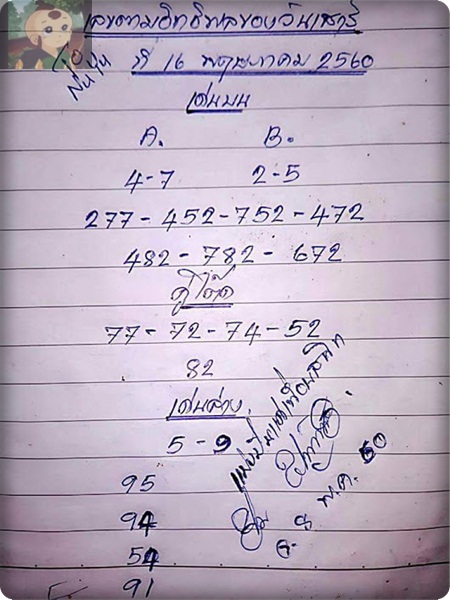 เลขตามอิทธิพลของวันเสาร์
ที่ 16 พฤษภาคม 2560
เด่นบน
A. B.
4-7 2-5
277-452-752-472
482-782-672
คู่โต๊ด
77-72-74-52
82
เด่นล่าง
5-9
95
94
54
91
พ.ค. 60